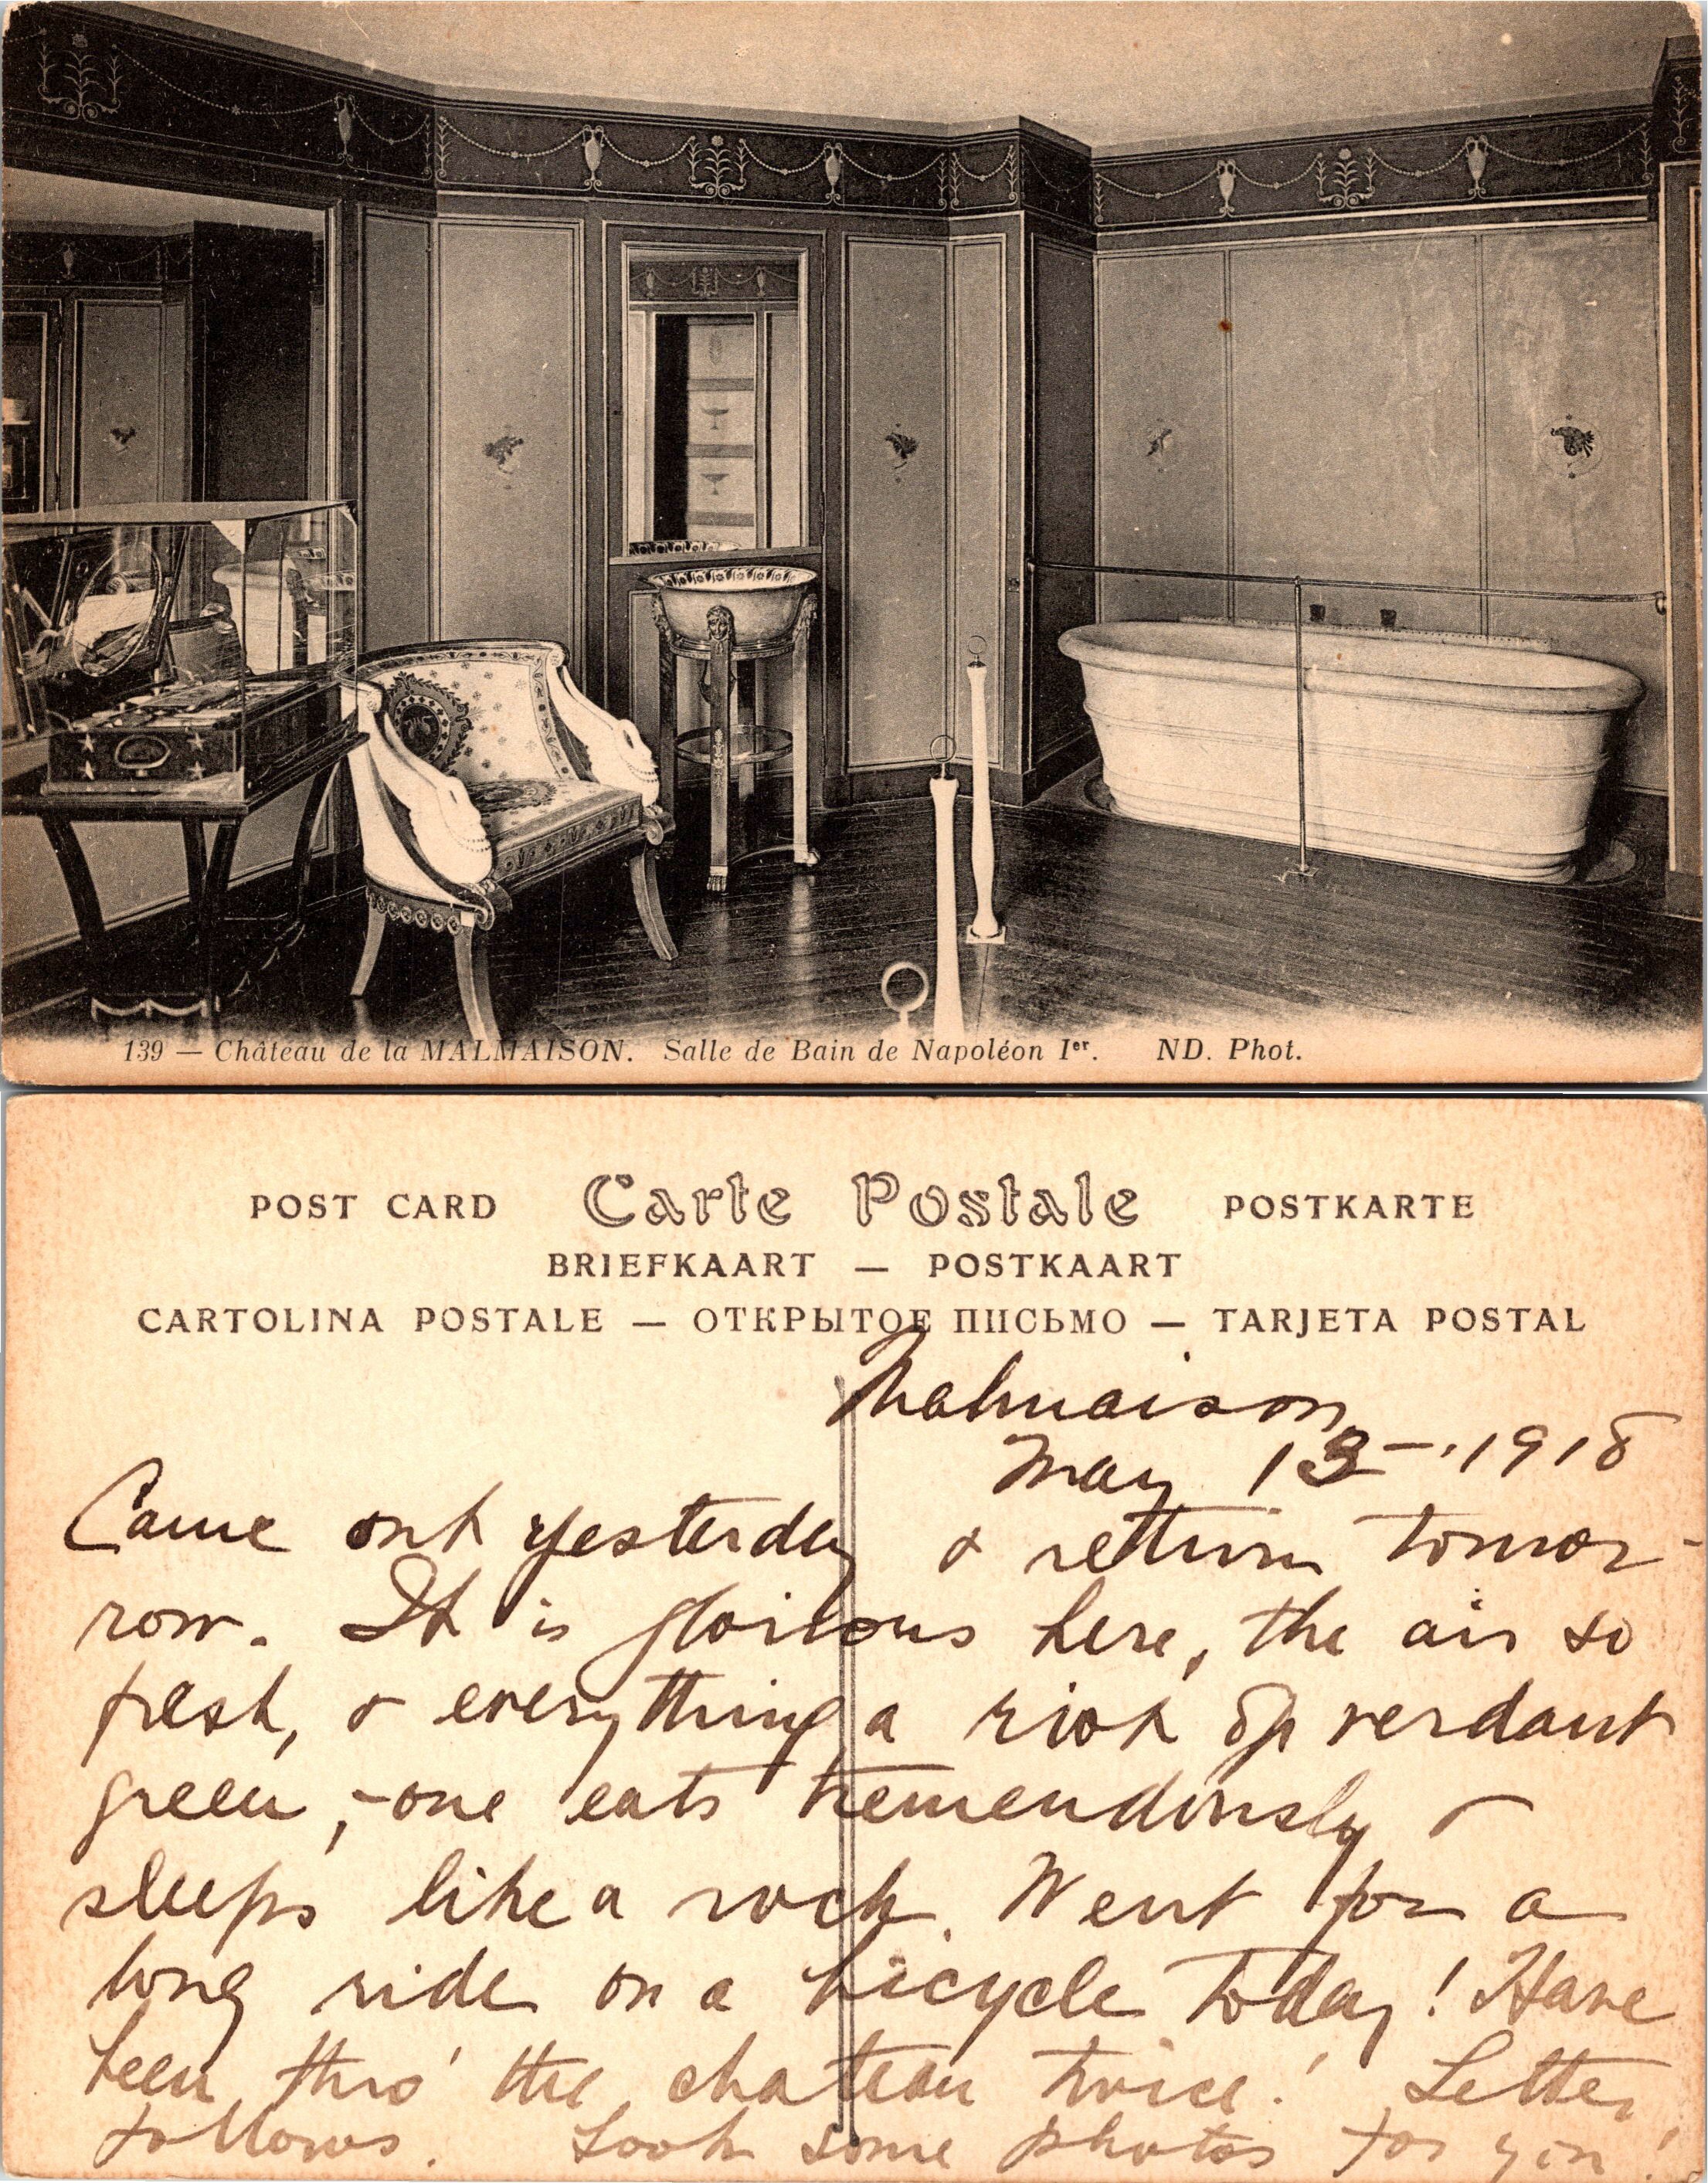 139 — Château de la MALMAISON. Salle de Bain de Napoléon Iᵉʳ. ND. Phot.
POST CARD Carte Postale POSTKARTE
BRIEFKAART — POSTKAART
CARTOLINA POSTALE — ОТКРЫТОЕ ПИСЬМО — TARJETA POSTAL
Malmaison
May 13 — 1918
Came out yesterday & return tomor-
row. It is glorious here, the air so
fresh, & everything a riot of verdant
green, - one eats tremendously &
sleeps like a rock. Went for a
long ride on a bicycle today! Have
been thro' the chateau twice! Letter
follows. Took some photos for you!